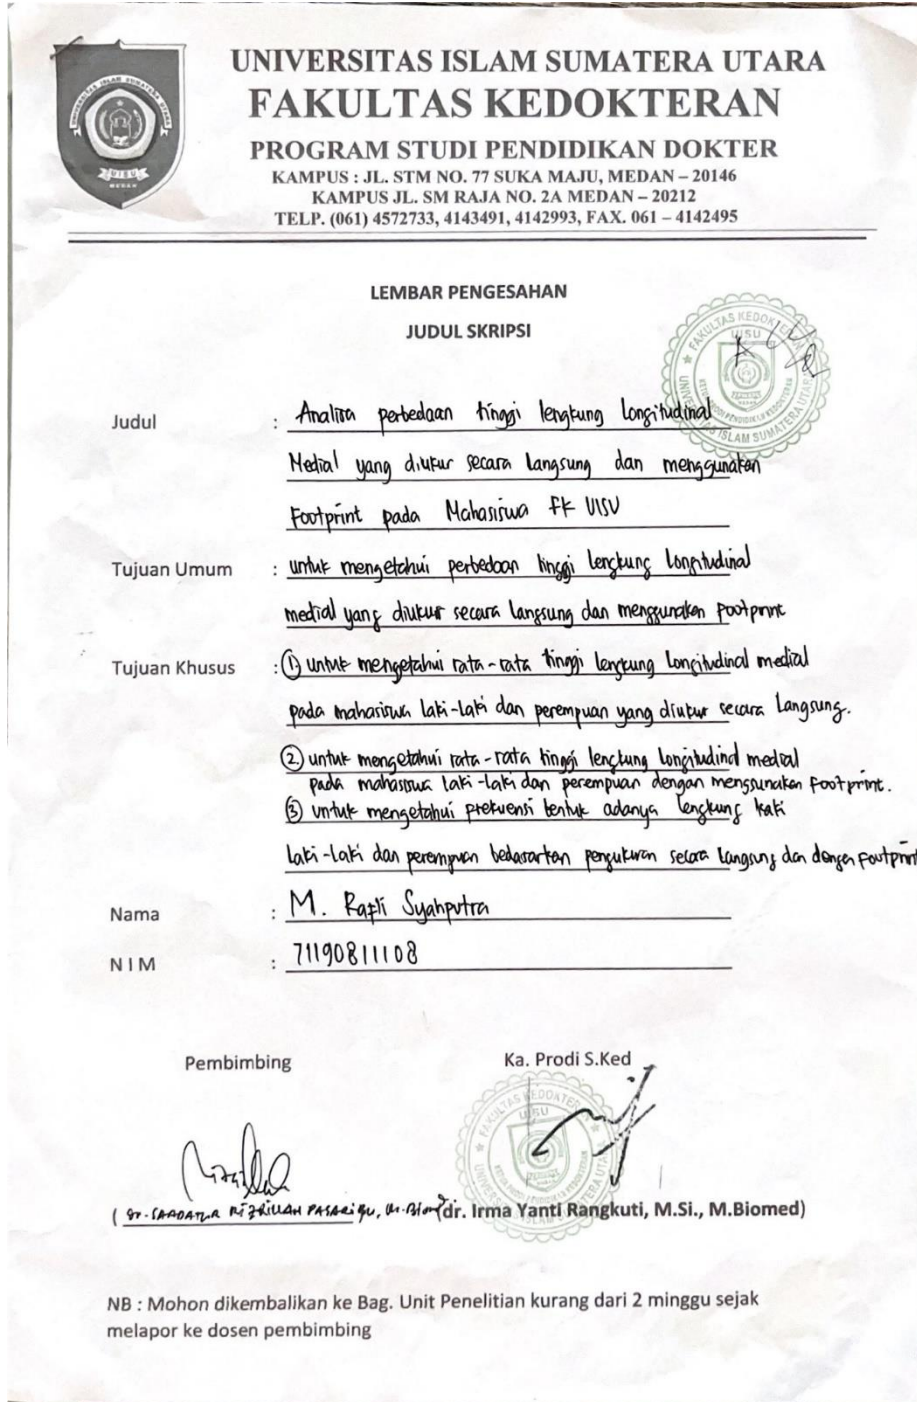 UNIVERSITAS ISLAM SUMATERA UTARA
FAKULTAS KEDOKTERAN
PROGRAM STUDI PENDIDIKAN DOKTER
KAMPUS : JL. STM NO. 77 SUKA MAJU, MEDAN – 20146
KAMPUS JL. SM RAJA NO. 2A MEDAN – 20212
TELP. (061) 4572733, 4143491, 4142993, FAX. 061 – 4142495
UNIVERSITAS ISLAM SUMATERA UTARA
UISU
MEDAN
LEMBAR PENGESAHAN
JUDUL SKRIPSI
FAKULTAS KEDOKTERAN
UISU
UNIVERSITAS ISLAM SUMATERA UTARA
Judul : Analisa perbedaan tinggi lengkung longitudinal
Medial yang diukur secara langsung dan menggunakan
Footprint pada Mahasiswa FK UISU
Tujuan Umum : untuk mengetahui perbedaan tinggi lengkung longitudinal
medial yang diukur secara langsung dan menggunakan footprint
Tujuan Khusus : ① untuk mengetahui rata-rata tinggi lengkung longitudinal medial
pada mahasiswa laki-laki dan perempuan yang diukur secara langsung.
② untuk mengetahui rata-rata tinggi lengkung longitudinal medial
pada mahasiswa laki-laki dan perempuan dengan menggunakan footprint.
③ untuk mengetahui frekuensi bentuk adanya lengkung kaki
laki-laki dan perempuan bedasarkan pengukuran secara langsung dan dengan footprint
Nama : M. Rafli Syahputra
NIM : 71190811108
Pembimbing Ka. Prodi S.Ked
FAKULTAS KEDOKTERAN
UISU
UNIVERSITAS ISLAM SUMATERA UTARA
(dr. Irma Yanti Rangkuti, M.Si., M.Biomed)
NB : Mohon dikembalikan ke Bag. Unit Penelitian kurang dari 2 minggu sejak
melapor ke dosen pembimbing